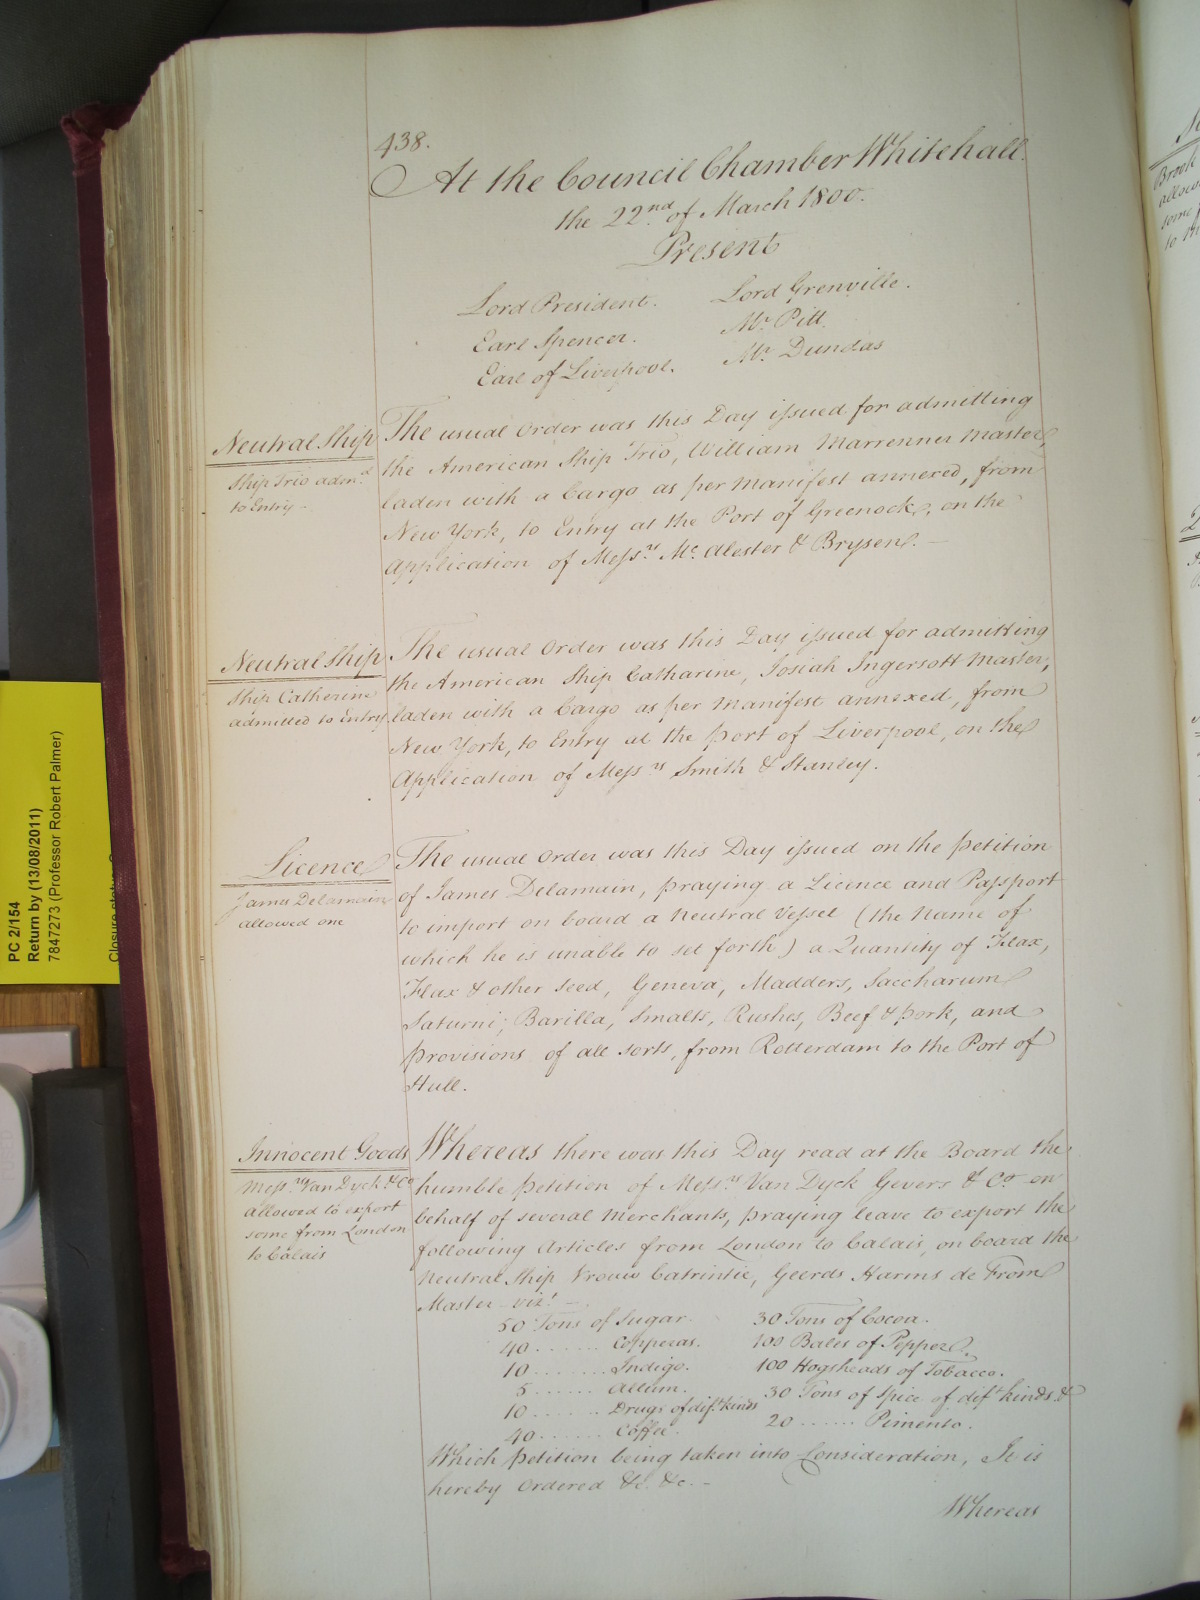 438.
At the Council Chamber Whitehall.
the 22nd of March 1800.
Present
Lord President. Lord Grenville.
Earl Spencer. Mr. Pitt.
Earl of Liverpool. Mr. Dundas
Neutral Ship
Ship Trio admd.
to Entry -
The usual Order was this Day issued for admitting
the American Ship Trio, William Marrenner Master,
laden with a Cargo as per Manifest annexed, from
New York, to Entry at the Port of Greenock, on the
Application of Messrs. Mc. Alester & Brysen. -
Neutral Ship
Ship Catherine
admitted to Entry
The usual Order was this Day issued for admitting
the American Ship Catharine, Josiah Ingersott Master,
laden with a Cargo as per Manifest annexed, from
New York, to Entry at the port of Liverpool, on the
Application of Messrs Smith & Stanley.
Licence
James Delamain
allowed one
The usual Order was this Day issued on the petition
of James Delamain, praying a Licence and Passport
to import on board a Neutral Vessel (the Name of
which he is unable to set forth) a Quantity of Flax,
Flax & other Seed, Geneva, Madders, Saccharum
Saturni, Barilla, Smalts, Rushes, Beef & pork, and
provisions of all sorts, from Rotterdam to the Port of
Hull.
Innocent Goods
Messrs. Van Dyck & Co
allowed to export
some from London
to Calais
Whereas there was this Day read at the Board the
humble petition of Messrs. Van Dyck Gevers & Co. on
behalf of several Merchants, praying leave to export the
following Articles from London to Calais, on board the
Neutral Ship Vrouw Catrintie, Geerds Harms de From
Master vizt. -
50 Tons of Sugar. 30 Tons of Cocoa.
40 ...... Copperas. 100 Bales of Pepper.
10 ...... Indigo. 100 Hogsheads of Tobacco.
5 ...... Allum. 30 Tons of Spice of dift. kinds &
10 ...... Drugs of dift. kinds 20 ...... Pimento.
40 ...... Coffee.
Which petition being taken into Consideration, It is
hereby Ordered &c. &c. -
Whereas
PC 2/154
Return by (13/08/2011)
7847273 (Professor Robert Palmer)
Brook
allow
some
to